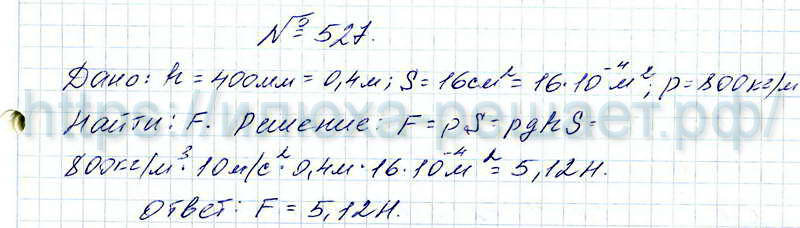 № 527.
Дано: h = 400мм = 0,4м; S = 16см² = 16·10⁻⁴м²; ρ = 800кг/м³
Найти: F. Решение: F = pS = ρghS =
800кг/м³·10м/с²·0,4м·16·10⁻⁴м² = 5,12Н.
Ответ: F = 5,12Н.
https://илюха-решает.рф/